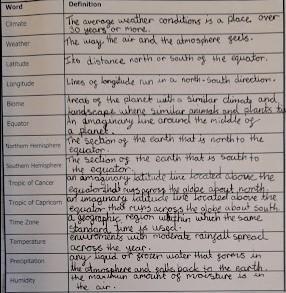 Word Definition
Climate The average weather conditions is a place over
30 years or more.
Weather The way the air and the atmosphere feels.
Latitude Its distance north or south of the equator.
Longitude Lines of longitude run in a north-south direction.
Biome Areas of the planet with a similar climate and
landscape where similar animals and plants
Equator An imaginary line around the middle of
a planet.
Northern Hemisphere The section of the earth that is north to the
equator.
Southern Hemisphere The section of the earth that is south to
the equator.
Tropic of Cancer an imaginary latitude line located above the
equator that runs across the globe about north.
Tropic of Capricorn an imaginary latitude line located above the
equator that runs across the globe about south.
Time Zone a geographic region within which the same
standard time is used.
Temperature enviroments with moderate rainfall spread
across the year.
Precipitation any liquid or frozen water that forms in
the atmosphere and falls back to the earth.
Humidity the maximum amount of moisture is in
the air.